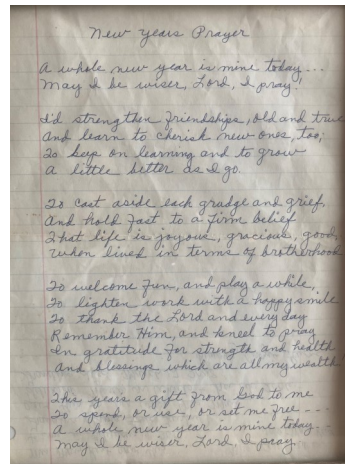 New Years Prayer
A whole new year is mine today...
May I be wiser, Lord, I pray!
I'd strengthen friendships, old and true
And learn to cherish new ones, too;
To keep on learning and to grow
A little better as I go.
To cast aside each grudge and grief
And hold fast to a firm belief
That life is joyous, gracious, good
When lived in terms of brotherhood
To welcome fun, and play a while
To lighten work with a happy smile
To thank the Lord and every day
Remember Him, and kneel to pray
In gratitude for strength and health
And blessings which are all my wealth
This years a gift from God to me
To spend, or use, or set me free ---
A whole new year is mine today..
May I be wiser, Lord, I pray.